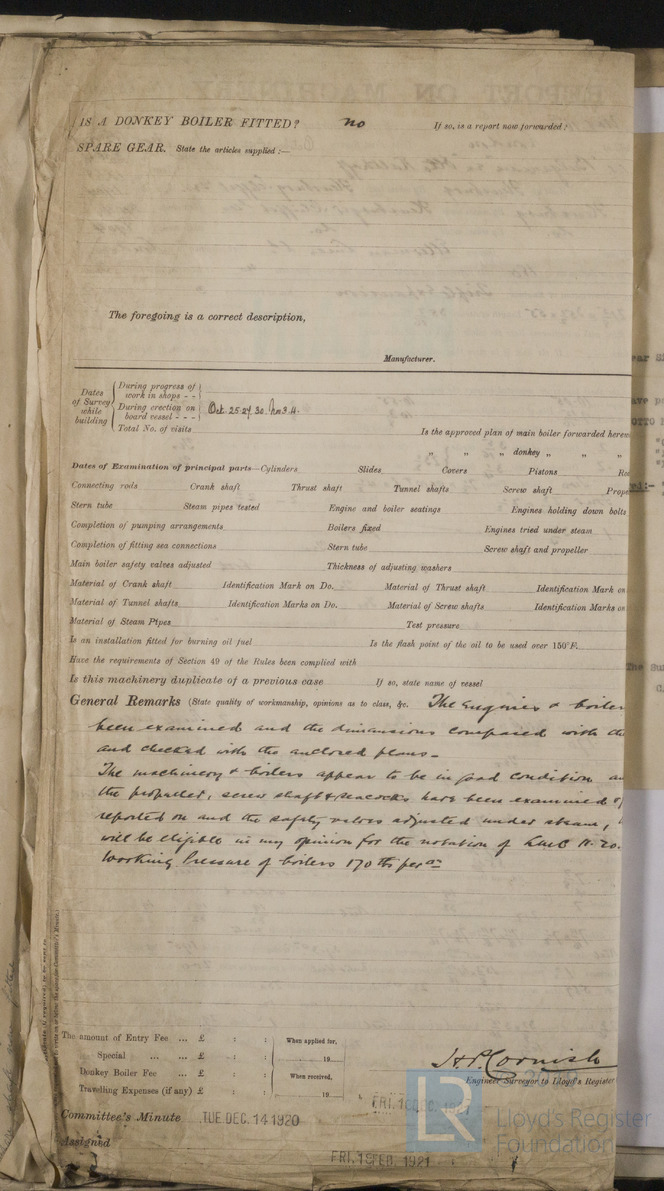 IS A DONKEY BOILER FITTED? no If so, is a report now forwarded?
SPARE GEAR. State the articles supplied:—
The foregoing is a correct description,
Manufacturer.
Dates of Survey while building
During progress of work in shops - -
During erection on board vessel - - - Oct. 25. 27. 30. Nov 3. 4.
Total No. of visits
Is the approved plan of main boiler forwarded herew
" " " donkey " " "
Dates of Examination of principal parts—Cylinders Slides Covers Pistons Ro
Connecting rods Crank shaft Thrust shaft Tunnel shafts Screw shaft Prope
Stern tube Steam pipes tested Engine and boiler seatings Engines holding down bolts
Completion of pumping arrangements Boilers fixed Engines tried under steam
Completion of fitting sea connections Stern tube Screw shaft and propeller
Main boiler safety valves adjusted Thickness of adjusting washers
Material of Crank shaft Identification Mark on Do. Material of Thrust shaft Identification Mark on
Material of Tunnel shafts Identification Marks on Do. Material of Screw shafts Identification Marks on
Material of Steam Pipes Test pressure
Is an installation fitted for burning oil fuel Is the flash point of the oil to be used over 150°F.
Have the requirements of Section 49 of the Rules been complied with
Is this machinery duplicate of a previous case If so, state name of vessel
General Remarks (State quality of workmanship, opinions as to class, &c. The Engines & boiler
been examined and the dimensions compared with the
and checked with the enclosed plans-
The machinery & boilers appear to be in good condition an
the propeller, screw shaft & seacocks have been examined &
reported on and the safety valves adjusted under steam,
will be eligible in my opinion for the notation of LMC 11-20.
Working Pressure of boilers 170 lbs per
The amount of Entry Fee ... £ : : When applied for,
Special ... ... £ : : 19
Donkey Boiler Fee ... £ : : When received,
Travelling Expenses (if any) £ : : 19
H.P. Cornish
Engineer Surveyor to Lloyd's Register
Committee's Minute TUE DEC. 14 1920
Assigned
FRI. 18 FEB. 1921
LR
Lloyd's Register
Foundation